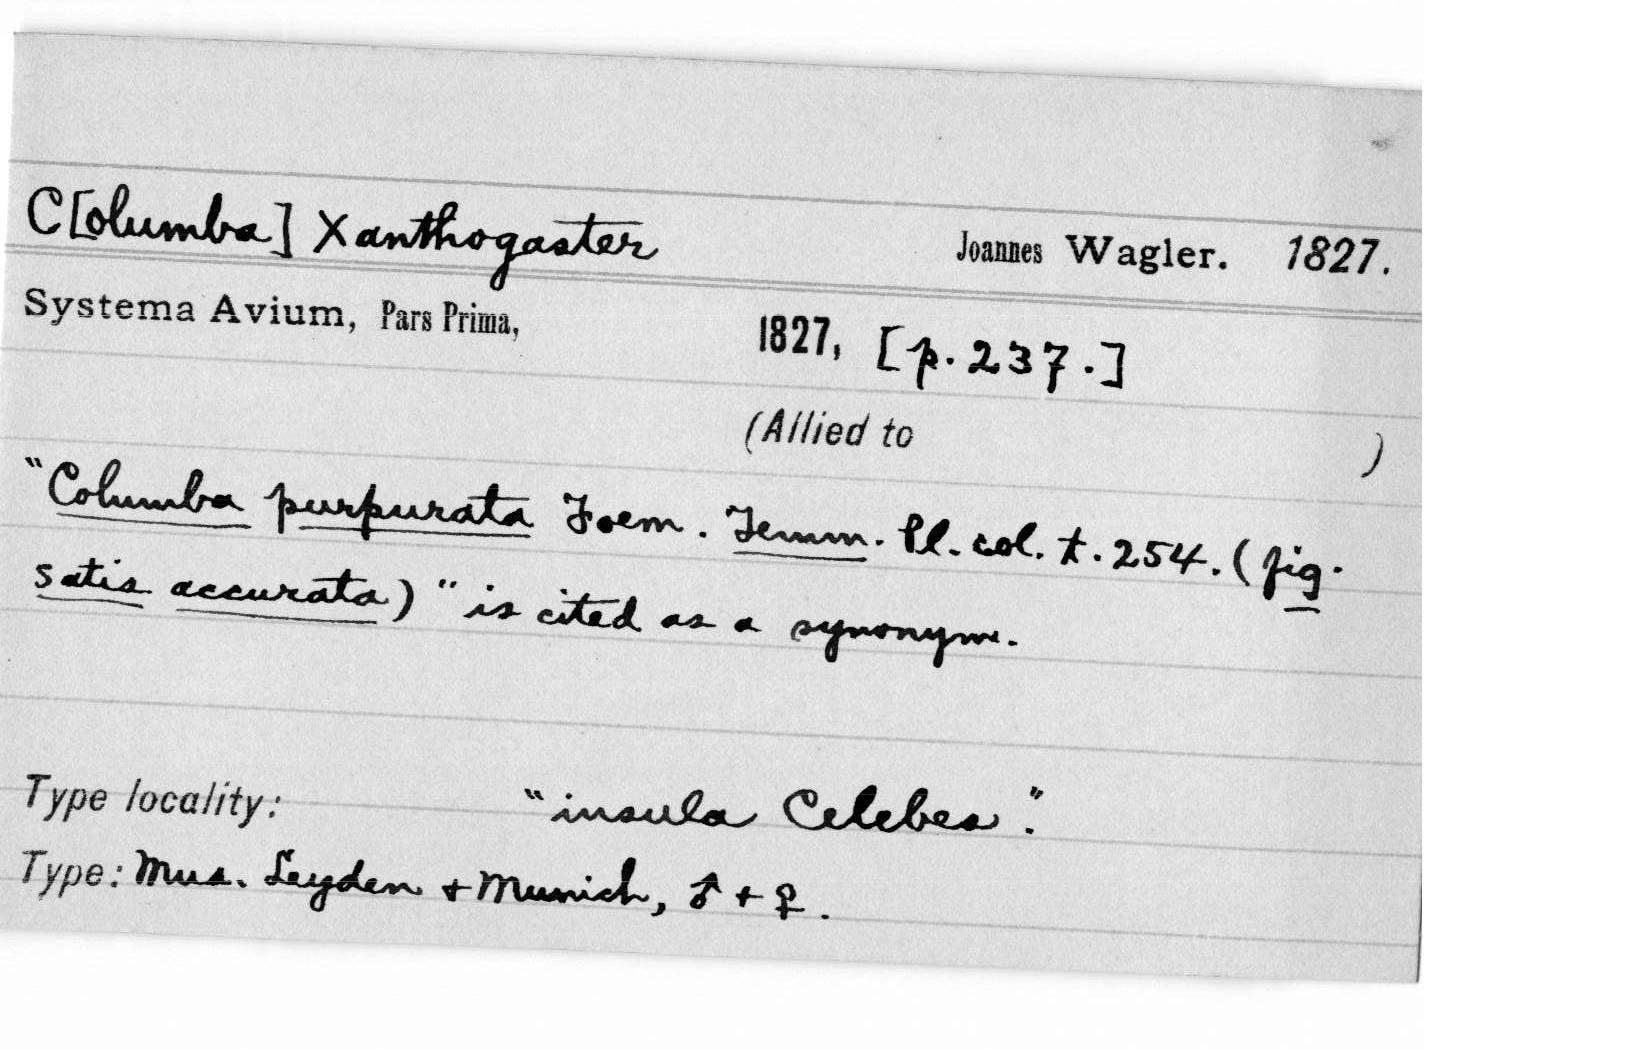 C[olumba] Xanthogaster Joannes Wagler. 1827.
Systema Avium, Pars Prima, 1827, [p. 237.]
(Allied to )
"Columba purpurata Foem. Temm. Pl. col. t. 254. (fig.
satis accurata)" is cited as a synonym.
Type locality: "insula Celebes".
Type: Mus. Leyden + Munich, ♂ + ♀.